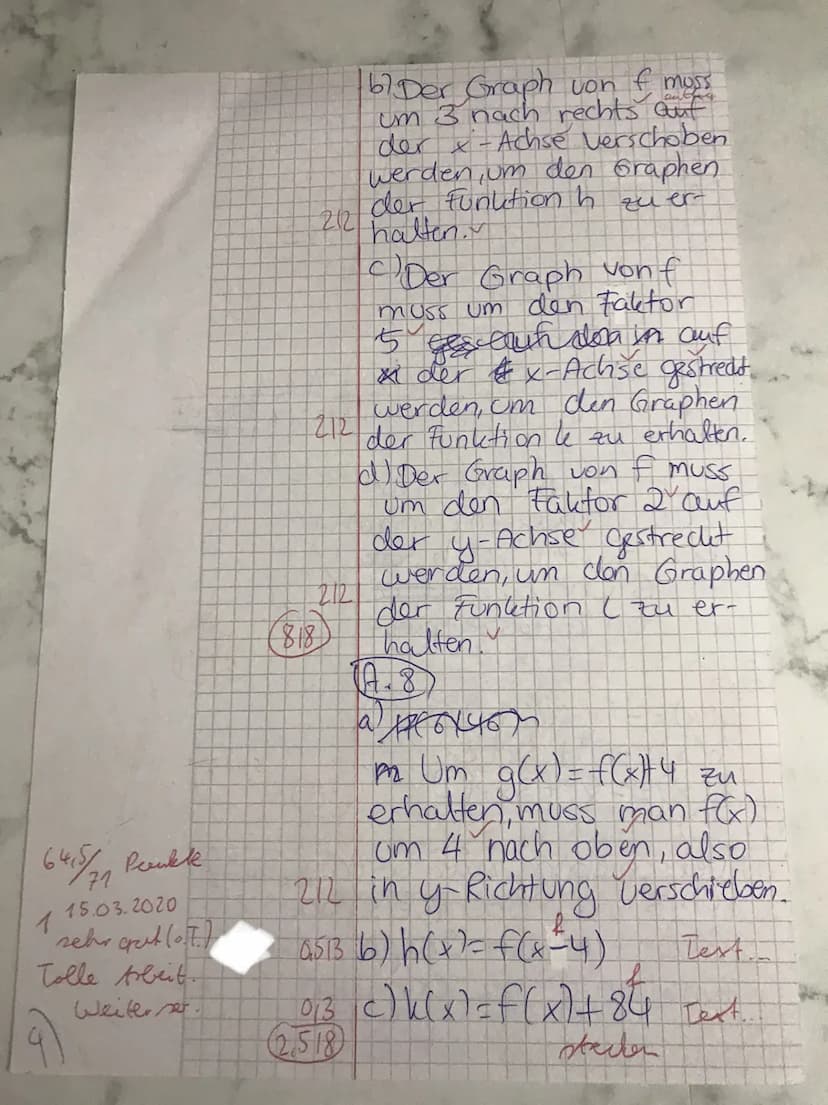 b) Der Graph von f muss
um 3 nach rechts auf
der x-Achse verschoben
werden, um den Graphen
der Funktion h zu er-
2/2 halten.
c) Der Graph von f
muss um den Faktor
5 auf
der x-Achse gestreckt
werden, um den Graphen
2/2 der Funktion k zu erhalten.
d) Der Graph von f muss
um den Faktor 2 auf
der y-Achse gestreckt
werden, um den Graphen
2/2 der Funktion l zu er-
8/8 halten.
A.8
a)
Um g(x)=f(x)+4 zu
erhalten, muss man f(x)
um 4 nach oben, also
2/2 in y-Richtung verschieben.
f
0,5/3 b) h(x)=f(x-4) Text...
f
0/3 c) k(x)=f(x)+84 Text...
2,5/8 strecken
64,5/71 Punkte
1 15.03.2020
sehr gut (o.T.)
Tolle Arbeit.
Weiter so.
9)